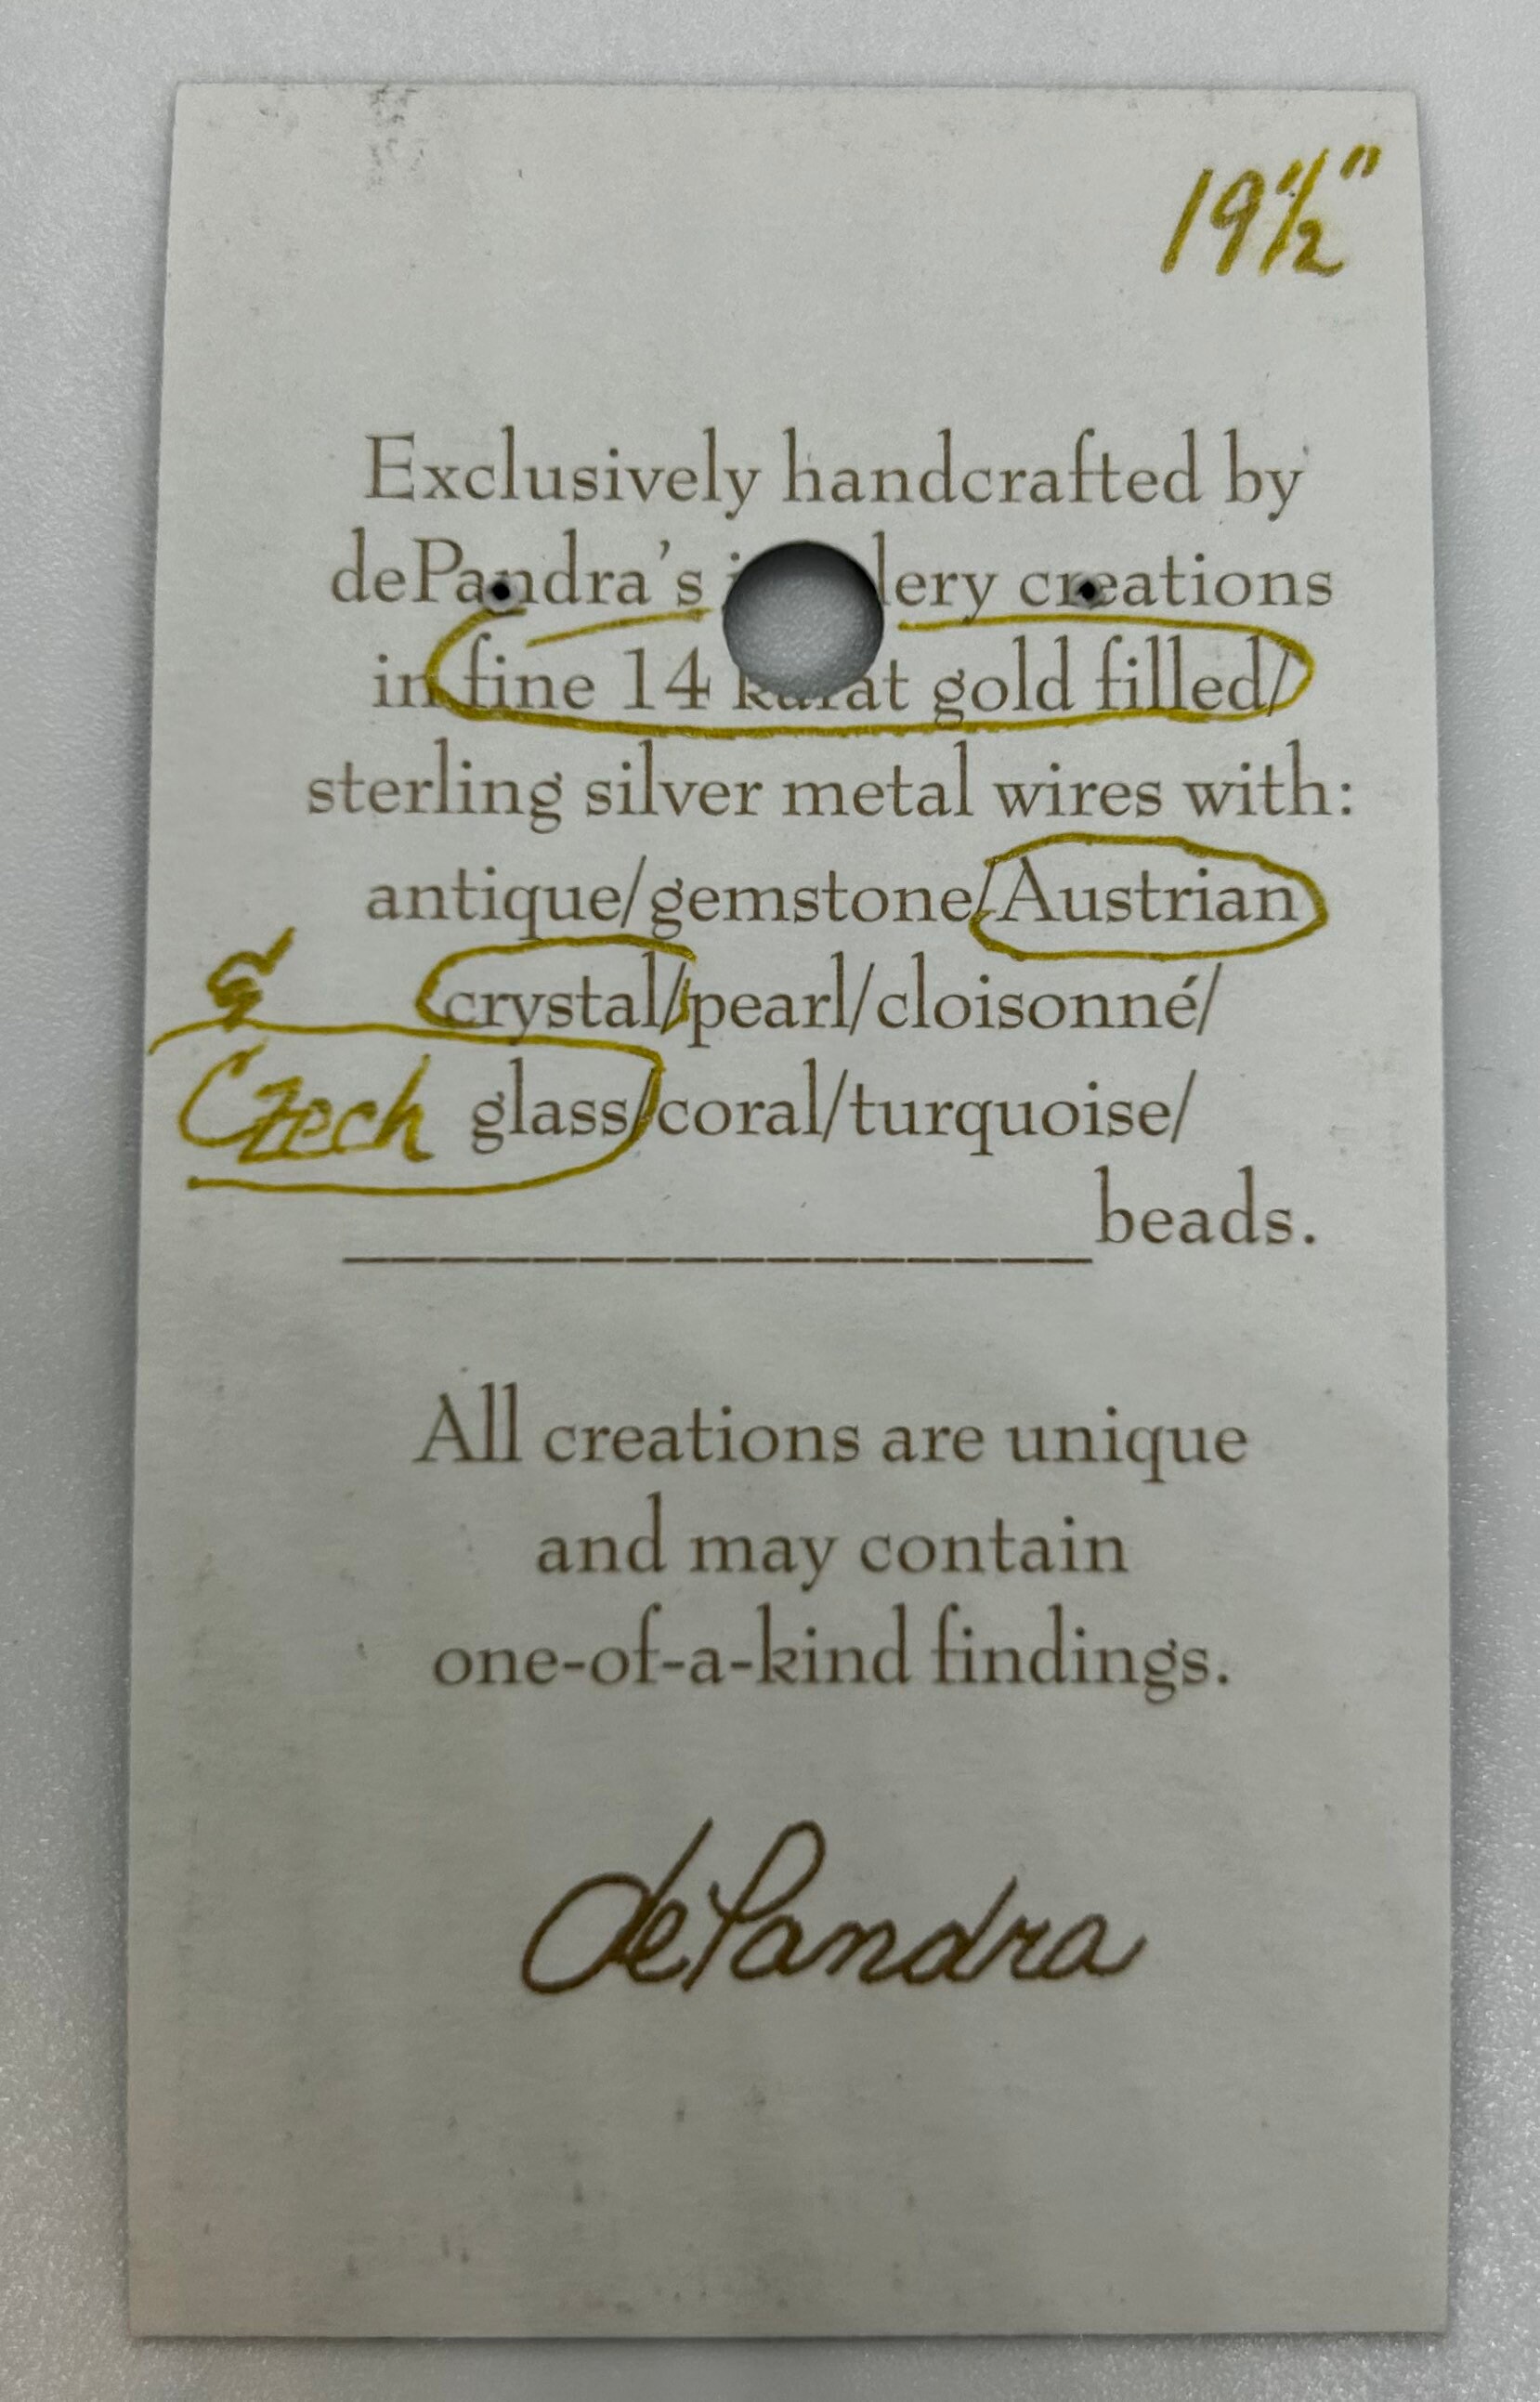 19 1/2"
Exclusively handcrafted by
dePandra's lery creations
in fine 14 karat gold filled/
sterling silver metal wires with:
antique/gemstone/Austrian
& crystal/pearl/cloisonné/
Czech glass/coral/turquoise/
____________________beads.
All creations are unique
and may contain
one-of-a-kind findings.
dePandra